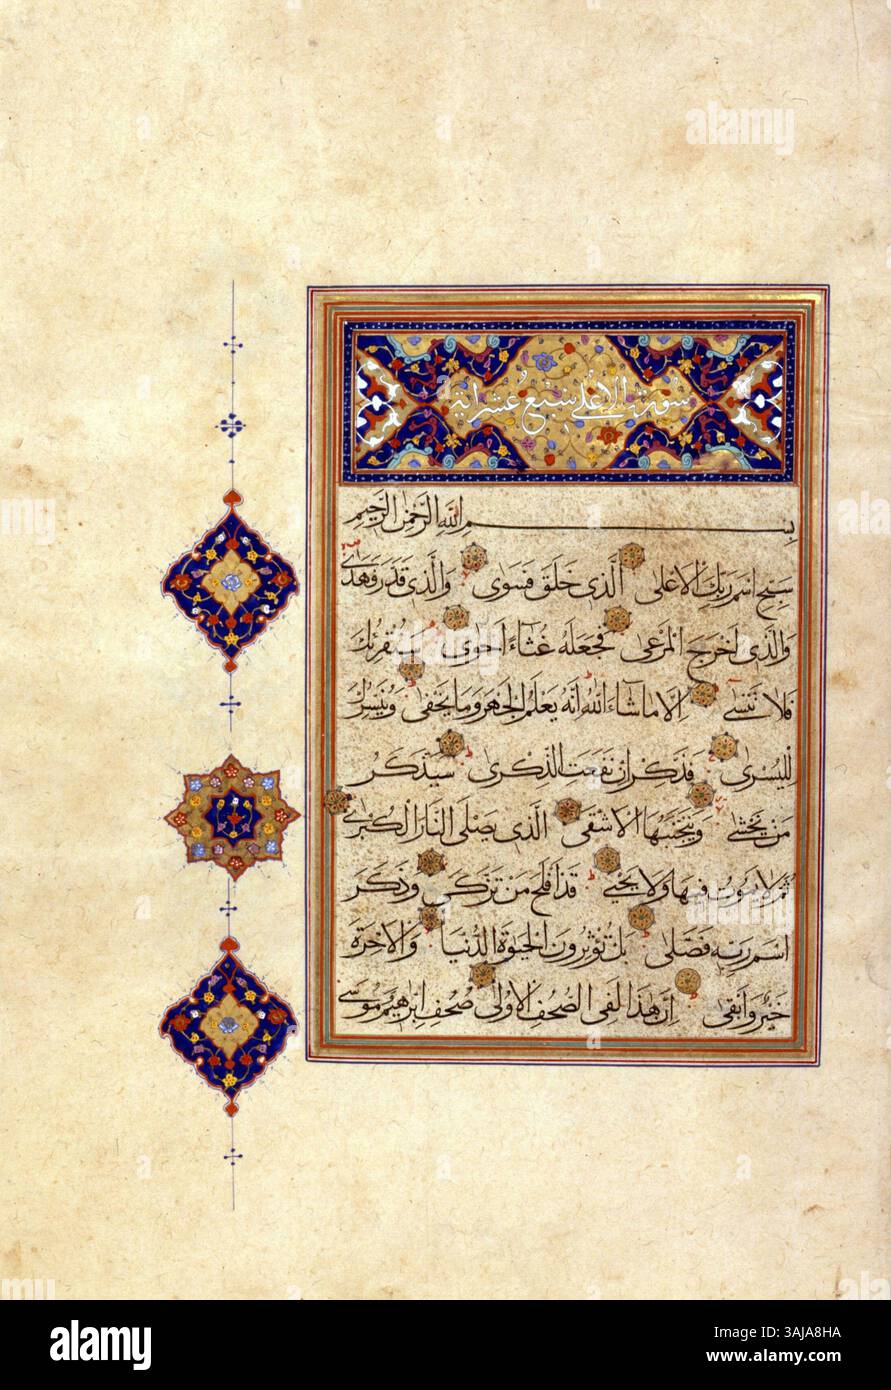 سورة الاعلى سبع عشر اية
بسم الله الرحمن الرحيم
سبح اسم ربك الاعلى الذى خلق فسوى والذى قدر وهدى
والذى اخرج المرعى فجعله غثاء احوى سنقرئك
فلا تنسى الا ما شاء الله انه يعلم الجهر وما يخفى ونيسرك
لليسرى فذكر ان نفعت الذكرى سيذكر
من يخشى ويتجنبها الاشقى الذى يصلى النار الكبرى
ثم لا يموت فيها ولا يحيى قد افلح من تزكى وذكر
اسم ربه فصلى بل تؤثرون الحيوة الدنيا والاخرة
خير وابقى ان هذا لفى الصحف الاولى صحف ابرهيم وموسى
alamy
Image ID: 3AJA8HA
www.alamy.com